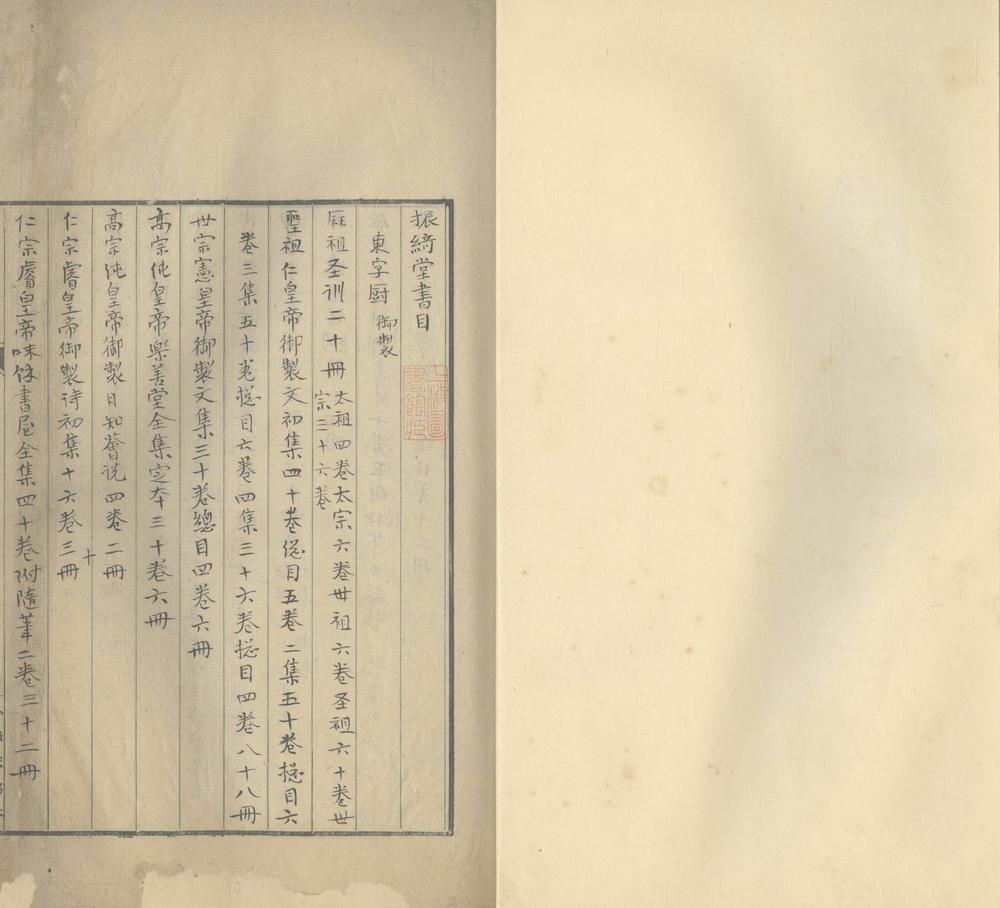 振綺堂書目
東字厨 御製
厤祖圣训二十冊 太祖四卷太宗六卷世祖六卷圣祖六十卷世
宗三十六卷
聖祖仁皇帝御製文初集四十卷総目五卷二集五十卷総目六
卷三集五十卷総目六卷四集三十六卷総目四卷八十八冊
世宗憲皇帝御製文集三十卷總目四卷六冊
高宗纯皇帝樂善堂全集定本三十卷六冊
高宗纯皇帝御製日知薈说四卷二冊
仁宗睿皇帝御製诗初集十六卷三冊
十
仁宗睿皇帝味馀書屋全集四十卷附隨筆二卷三十二冊
上海圖
書館藏